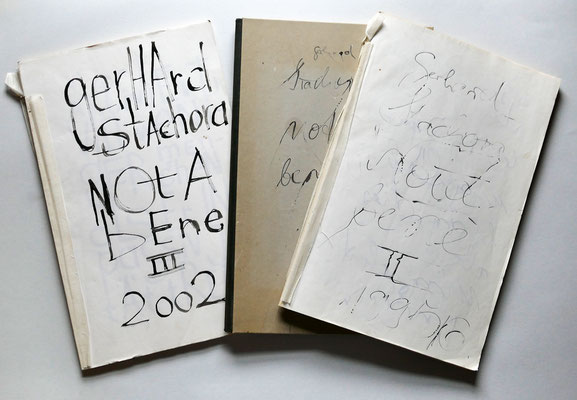 gerHArd
StAchora
NOtA
bEne
III
2002
gerhard
Stacho
Not
ben
Gerhard
Stachora
Nota
bene
II
1995/6